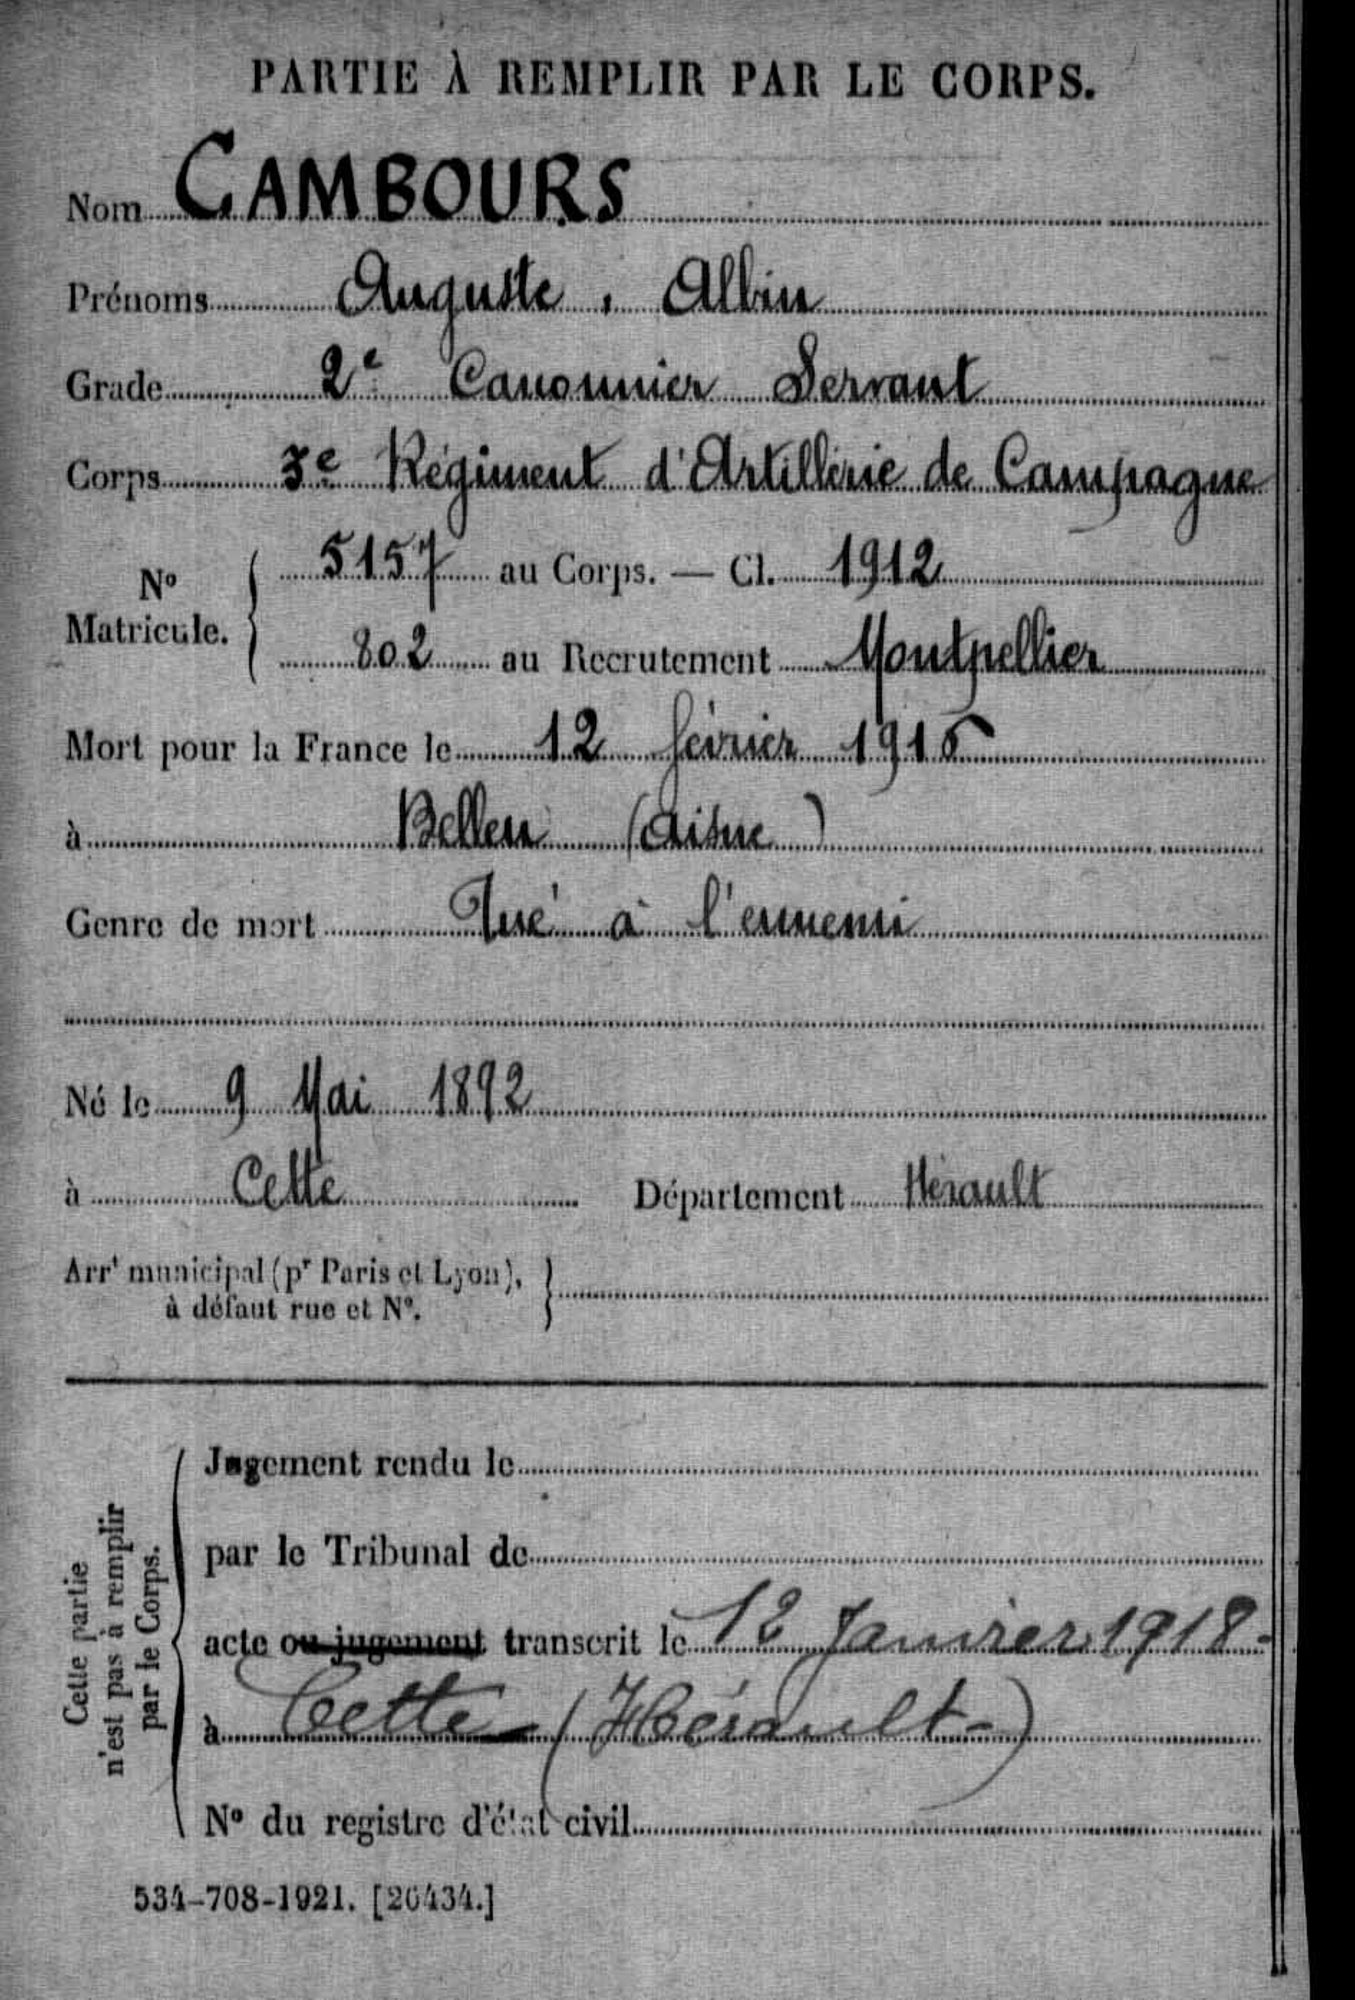 PARTIE À REMPLIR PAR LE CORPS.
Nom CAMBOURS
Prénoms Auguste, Albin
Grade 2e Canonnier Servant
Corps 3e Régiment d'Artillerie de Campagne
No Matricule. 5157 au Corps. — Cl. 1912
802 au Recrutement Montpellier
Mort pour la France le 12 février
à Belleu (Aisne)
Genre de mort Tué à l'ennemi
Né le 9 Mai 1892
à Cette Département Hérault
Arrt municipal (pr Paris et Lyon),
à défaut rue et No.
Cette partie
n'est pas à remplir
par le Corps.
Jugement rendu le
par le Tribunal de
acte ou jugement transcrit le 12 Janvier 1918-
à Cette (Hérault-)
No du registre d'état civil
534-708-1921. [26434.]